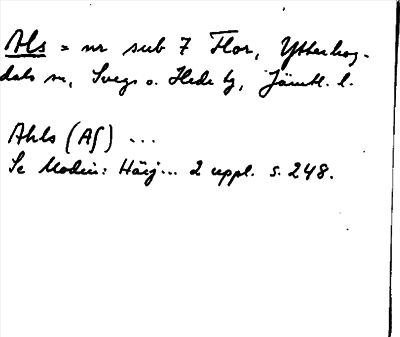 Als = nr sub 7 Flor, Ytterhog-
dals sn, Svegs o. Hede tg, Jämtl. l.
Ahls (Af) ...
Se Modin: Härj... 2 uppl. s. 248.